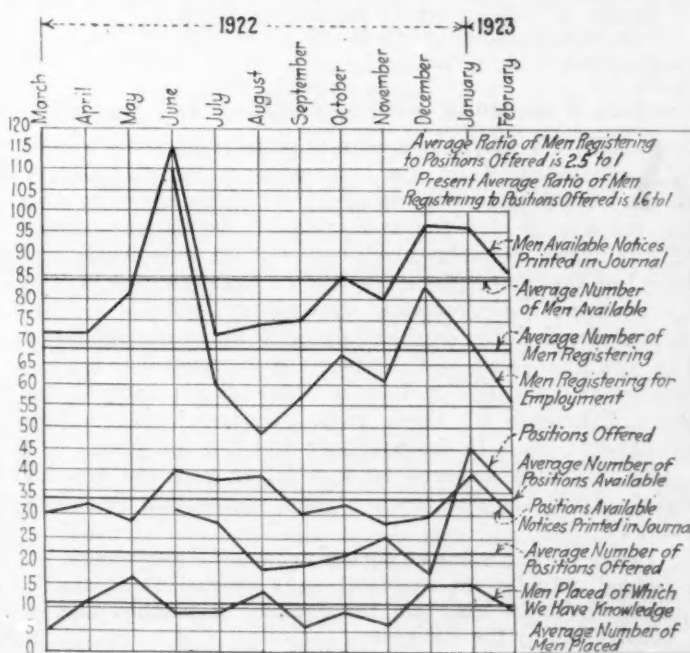 1922
1923
March
April
May
June
July
August
September
October
November
December
January
February
120
115
110
105
100
95
90
85
80
75
70
65
60
55
50
45
40
35
30
25
20
15
10
5
0
Average Ratio of Men Registering
to Positions Offered is 2.5 to 1
Present Average Ratio of Men
Registering to Positions Offered is 1.6 to 1
Men Available Notices
Printed in Journal
Average Number
of Men Available
Average Number of
Men Registering
Men Registering for
Employment
Positions Offered
Average Number of
Positions Available
Positions Available
Notices Printed in Journal
Average Number of
Positions Offered
Men Placed of Which
We Have Knowledge
Average Number of
Men Placed